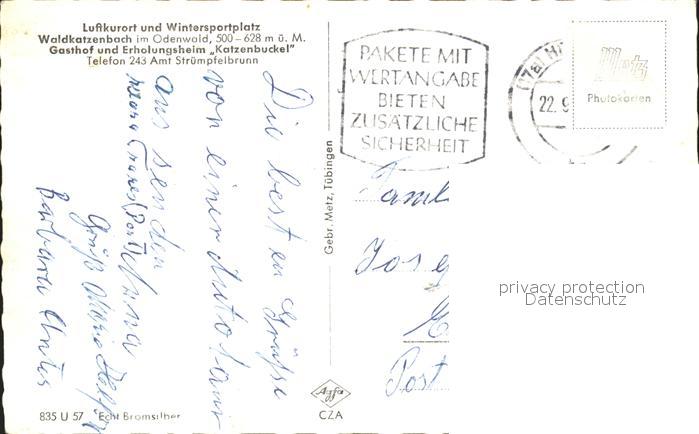 Luftkurort und Wintersportplatz
Waldkatzenbach im Odenwald, 500–628 m ü. M.
Gasthof und Erholungsheim „Katzenbuckel"
Telefon 243 Amt Strümpfelbrunn
Die besten Grüße
von einer Autotour
aus senden
Anna
Gruß
Barbara
835 U 57 Echt Bromsilber
Gebr. Metz, Tübingen
Agfa
CZA
PAKETE MIT
WERTANGABE
BIETEN
ZUSÄTZLICHE
SICHERHEIT
22. 9
Metz
Photokarten
Faml
Josef
Post
privacy protection
Datenschutz